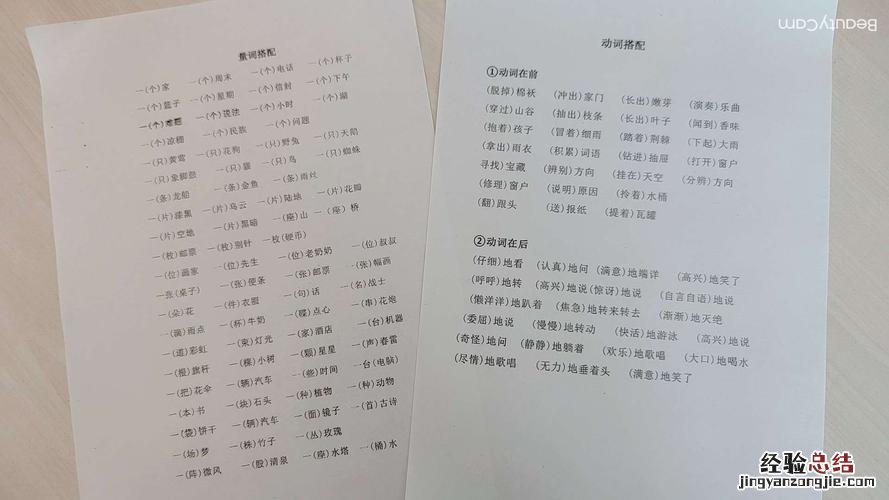 量词搭配
一(个)家 一(个)周末 一(个)电话 一(个)杯子
一(个)篮子 一(个)星期 一(个)信封 一(个)下午
一(个)难题 一(个)说法 一(个)小时 一(个)湖
一(个)凉棚 一(个)民族 一(个)问题
一(只)黄莺 一(只)花狗 一(只)野兔 一(只)天鹅
一(只)象脚鼓 一(只)猫 一(只)鸟 一(只)蜘蛛
一(条)龙船 一(条)金鱼 一(条)雨丝
一(片)漆黑 一(片)乌云 一(片)陆地 一(片)花瓣
一(片)空地 一(片)黑暗 一(座)山 一(座)桥
一(枚)邮票 一(枚)别针 一枚(硬币)
一(位)画家 一(位)先生 一(位)老奶奶 一(位)叔叔
一张(桌子) 一(张)便条 一(张)邮票 一(张)
一(朵)花 一(件)衣 一(句)话 一(名)战士
一(滴)雨点 一(杯)牛奶 一(碟)点心 一(串)花炮
一(道)彩虹 一(束)灯光 一(家)酒店 一(台)机器
一(根)旗杆 一(棵)小树 一(颗)星星 一(声)春雷
一(把)花伞 一(辆)汽车 一(些)时间 一(台)(电脑)
一(本)书 一(块)石头 一(种)植物 一(种)动物
一(袋)饼干 一(辆)汽车 一(面)镜子 一(首)古诗
一(场)梦 一(株)竹子 一(丛)玫瑰
一(阵)微风 一(股)清泉 一(座)水塔 一(桶)水
动词搭配
①动词在前
(脱掉)棉袄 (冲出)家门 (长出)嫩芽 (演奏)乐曲
(穿过)山谷 (抽出)枝条 (长出)叶子 (闻到)香味
(抱着)孩子 (冒着)细雨 (踏着)荆棘 (下起)大雨
(拿出)雨衣 (积累)词语 (钻进)抽屉 (打开)窗户
(寻找)宝藏 (辨别)方向 (挂在)天空 (分辨)方向
(修理)窗户 (说明)原因 (拎着)水桶
(翻)跟头 (送)报纸 (提着)瓦罐
②动词在后
(仔细)地看 (认真)地问 (满意)地端详 (高兴)地笑了
(呼呼)地转 (高兴)地说(惊讶)地说 (自言自语)地说
(懒洋洋)地趴着 (焦急)地转来转去 (渐渐)地灭绝
(委屈)地说 (慢慢)地转动 (快活)地游泳 (高兴)地说
(奇怪)地问 (静静)地躺着 (欢乐)地歌唱 (大口)地喝水
(尽情)地歌唱 (无力)地垂着头 (满意)地笑了
BeautyCam
经验总结
jingyanzongjie.com